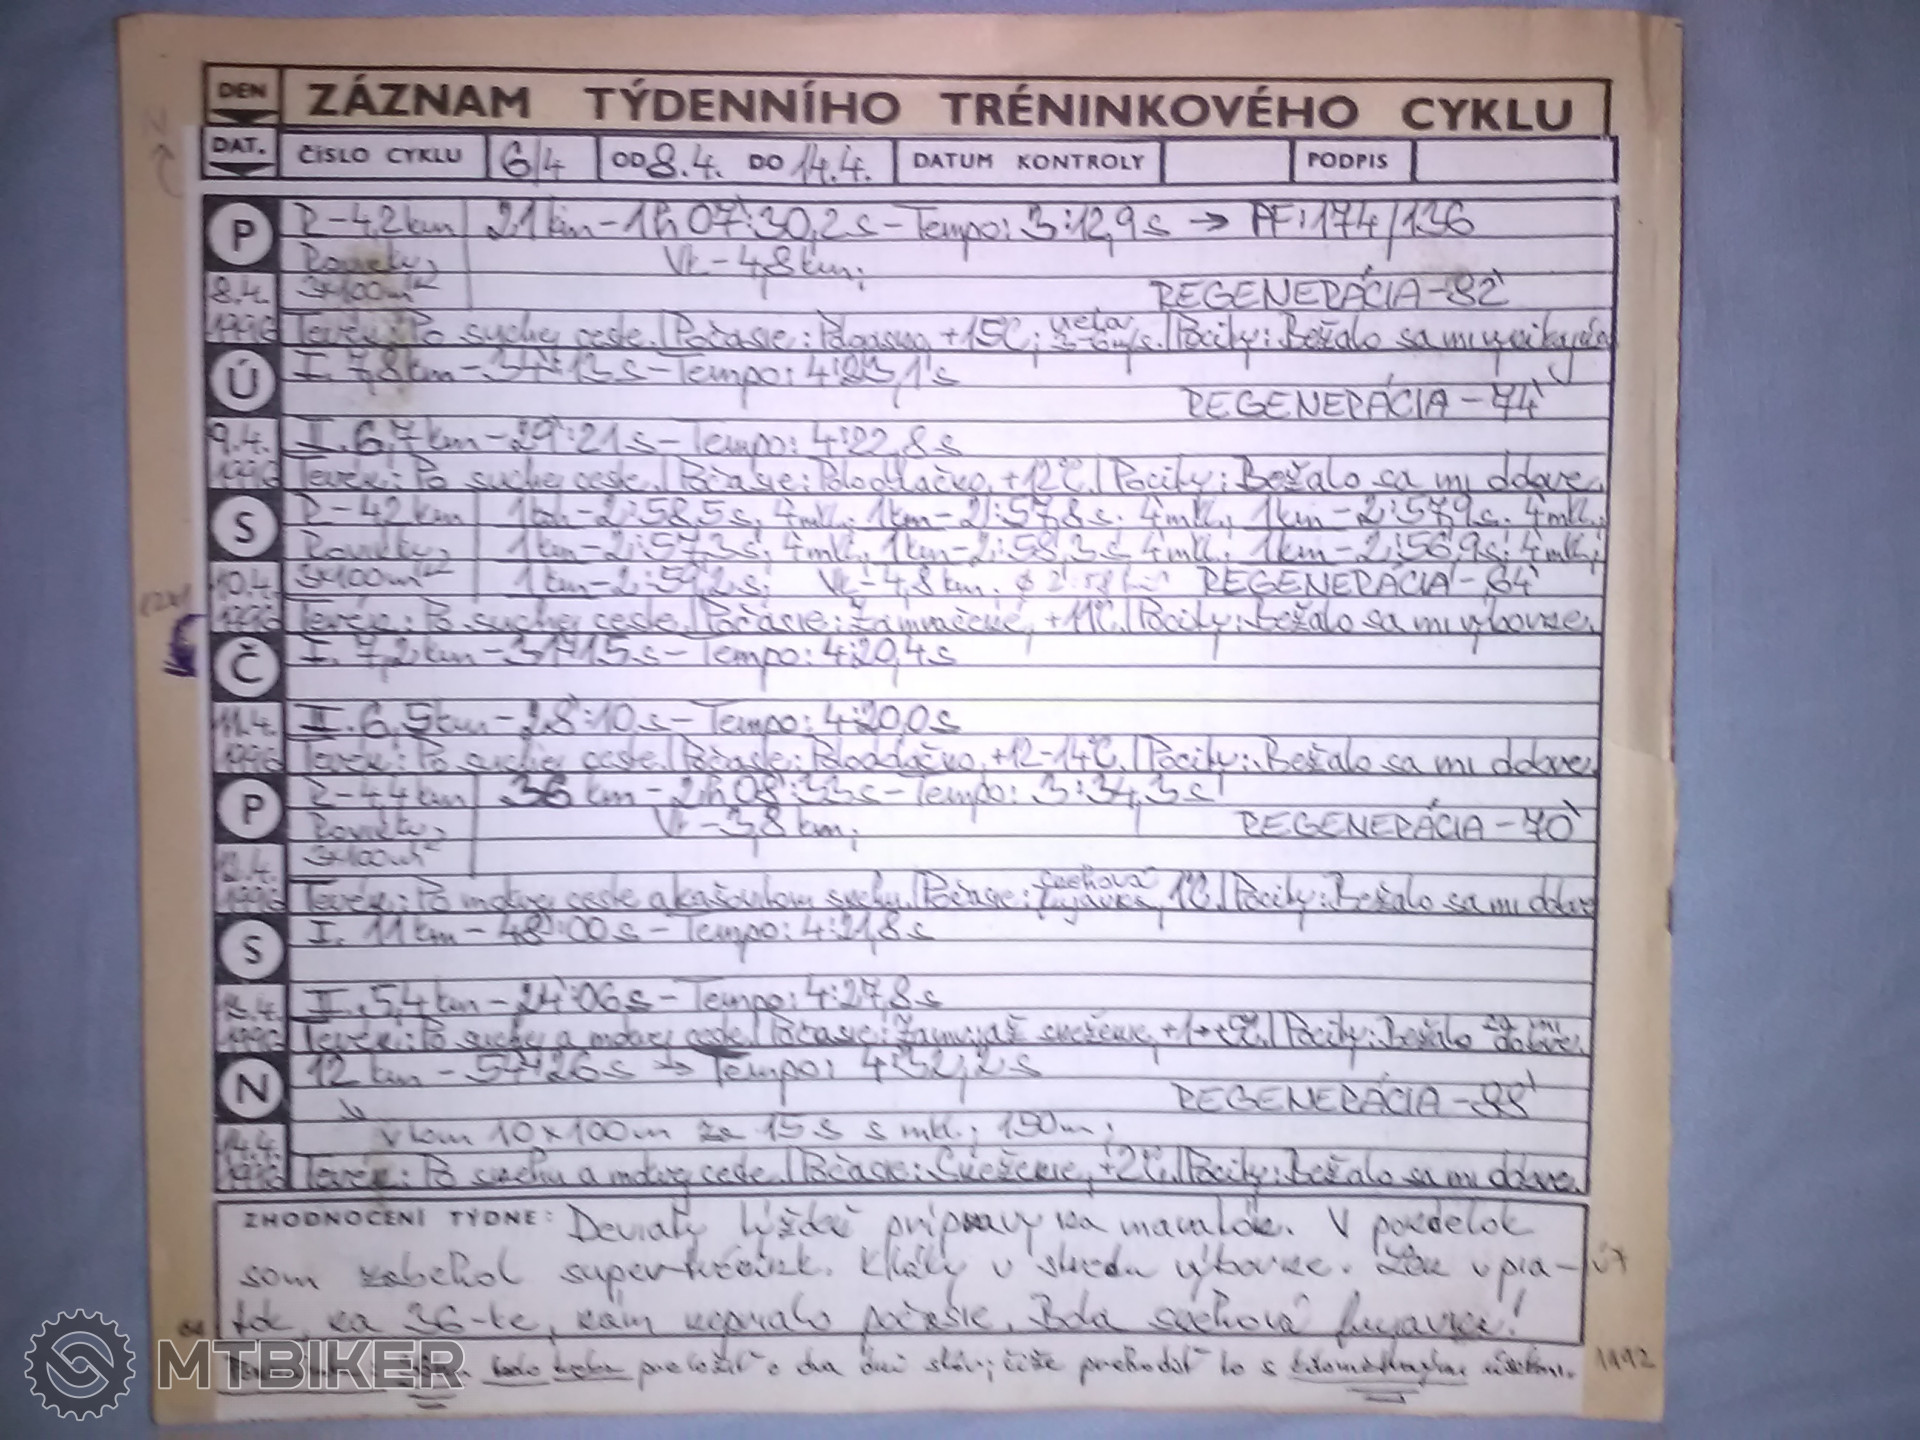 DEN ZÁZNAM TÝDENNÍHO TRÉNINKOVÉHO CYKLU
DAT. ČÍSLO CYKLU 6/4 OD 8.4. DO 14.4. DATUM KONTROLY PODPIS
P R-4,2km 21km-1h07':30,2s-Tempo: 3:12,9s → PF:174/136
Rovinky, Vk-4,8km;
8.4. 3x100m REGENERÁCIA-82'
1996 Terén: Po suchej ceste. Počasie: Polojasno, +15C; Pocity: Bežalo sa mi
Ú I. 7,8km-34':13s-Tempo: 4:23,1s
REGENERÁCIA-74'
9.4. II. 6,7km-29':21s-Tempo: 4:22,8s
1996 Terén: Po suchej ceste. Počasie: Polooblačno, +12°C. Pocity: Bežalo sa mi dobre.
S R-4,2km 1km-2:58,5s; 4'mk; 1km-2:57,8s; 4'mk; 1km-2:57,9s; 4'mk;
Rovinky, 1km-2:57,3s; 4'mk; 1km-2:58,3s; 4'mk; 1km-2:56,9s; 4'mk;
10.4. 3x100m 1km-2:59,2s; Vk-4,8km. REGENERÁCIA-64'
1996 Terén: Po suchej ceste. Počasie: Zamračené, +11°C. Pocity: Bežalo sa mi výborne.
Č I. 7,2km-31':15s-Tempo: 4:20,4s
11.4. II. 6,5km-28':10s-Tempo: 4:20,0s
1996 Terén: Po suchej ceste. Počasie: Polooblačno, +12-14°C. Pocity: Bežalo sa mi dobre.
P R-4,4km 36km-2h08':33s-Tempo: 3:34,3s
Rovinky, Vk-3,8km; REGENERÁCIA-70'
12.4. 3x100m
1996 Terén: Po mokrej ceste a snehu. Počasie: snehová fujavica, 1°C. Pocity: Bežalo sa mi dobre
S I. 11km-48':00s-Tempo: 4:21,8s
13.4. II. 5,4km-24':06s-Tempo: 4:27,8s
1996 Terén: Po suchej a mokrej ceste. Počasie: až sneženie, Pocity: Bežalo sa mi dobre.
N 12km-54':26s → Tempo: 4:32,2s
REGENERÁCIA-88'
v tom 10x100m za 15s s mk.; 190m;
14.4. 1996 Terén: Po snehu a mokrej ceste. Počasie: Sneženie, +2°C. Pocity: Bežalo sa mi dobre.
ZHODNOCENÍ TÝDNE: Deviaty týždeň prípravy na maratón. V pondelok
som zabehol super Kiláky v stredu výborne. Len v pia-
tok, na 36-ke, nám nepralo počasie. Bola snehová fujavica!
preložiť o dva dni skôr; čiže prehodiť to s kilometrovými úsekmi. 1992
MTBIKER